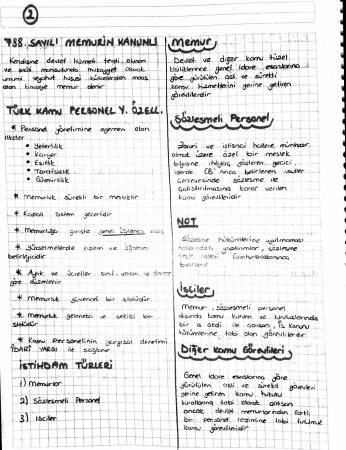 2
788. SAYILI MEMURIN KANUNU
Kendisine devlet hizmeti tevdi olunan
ve sicili mahsusunda mukayyet olarak
umumi veyahut hususi bütçelerden maaş
alan kimseye memur denir
TÜRK KAMU PERSONEL Y. ÖZELL.
* Personel yönetimine egemen olan
ilkeler
• Yeterlilik
• Kariyer
• Eşitlik
• Tarafsızlık
• Güvenirlik
* Memurluk sürekli bir meslektir
* Kapalı sistem geçerlidir
* Memurluğa girişte genel öğrenim esas
* Yükselmelerde kıdem ve öğrenim
belirleyicidir
* Aylık ve ücretler sınıf, unvan ve derece
göre düzenlenir
* Memurluk güvenceli bir statüdür
* Memurluk geleneksel ve setikli bir
statüdür
* Kamu Personelinin yargısal denetimi
İDARİ YARGI ile sağlanır
İSTİHDAM TÜRLERİ
1) Memurlar
2) Sözleşmeli Personel
3) İşciler
Memur
Devlet ve diğer kamu tüzel
kişiliklerince genel idare esaslarına
göre yürütülen asli ve sürekli
kamu hizmetlerini yerine getiren
görevlilerdir
Sözleşmeli Personel
Zaruri ve istisnai hallere münhasır
olmak üzere özel bir meslek
bilgisine ihtiyaç gösteren geçici,
işlerde CB'nca belirlenen usuller
çerçevesinde sözleşme ile
çalıştırılmasına karar verilen
kamu görevlileridir
NOT
Sözleşme hükümlerine uyulmaması
hallerindeki yaptırımlar, sözleşme
usulleri Cumhurbaşkanınca
belirlenir
İşciler
Memur, sözleşmeli personel
dışında kamu kurum ve kuruluşlarında
bir iş akdi ile çalışan, İş kanunu
hükümlerine tabi olan görevlilerdir.
Diğer Kamu Görevlileri
Genel idare esaslarına göre
yürütülen asli ve sürekli görevleri
yerine getiren kamu hukuku
kurallarına tabi olarak çalışan
ancak devlet memurlarından farklı
bir personel rejimine tabi tutulmuş
kamu görevlileridir